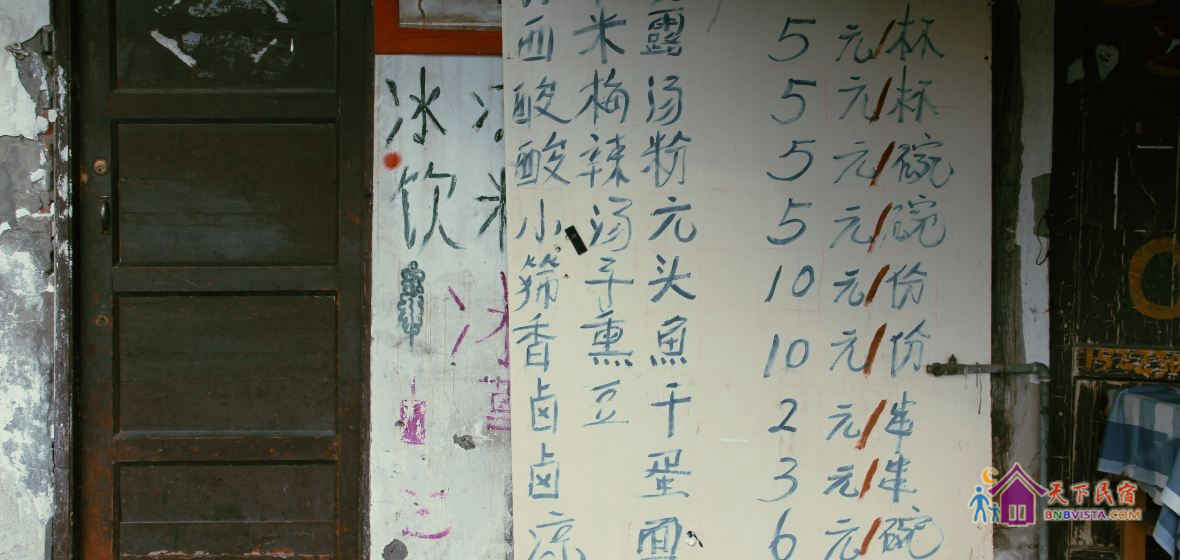 西米露 5元/杯
酸梅汤 5元/杯
酸辣粉 5元/碗
小汤元 5元/碗
筛子头 10元/份
香熏魚 10元/份
卤豆干 2元/串
卤蛋 3元/串
凉面 6元/碗
冰
饮
天下民宿
BNBVISTA.COM